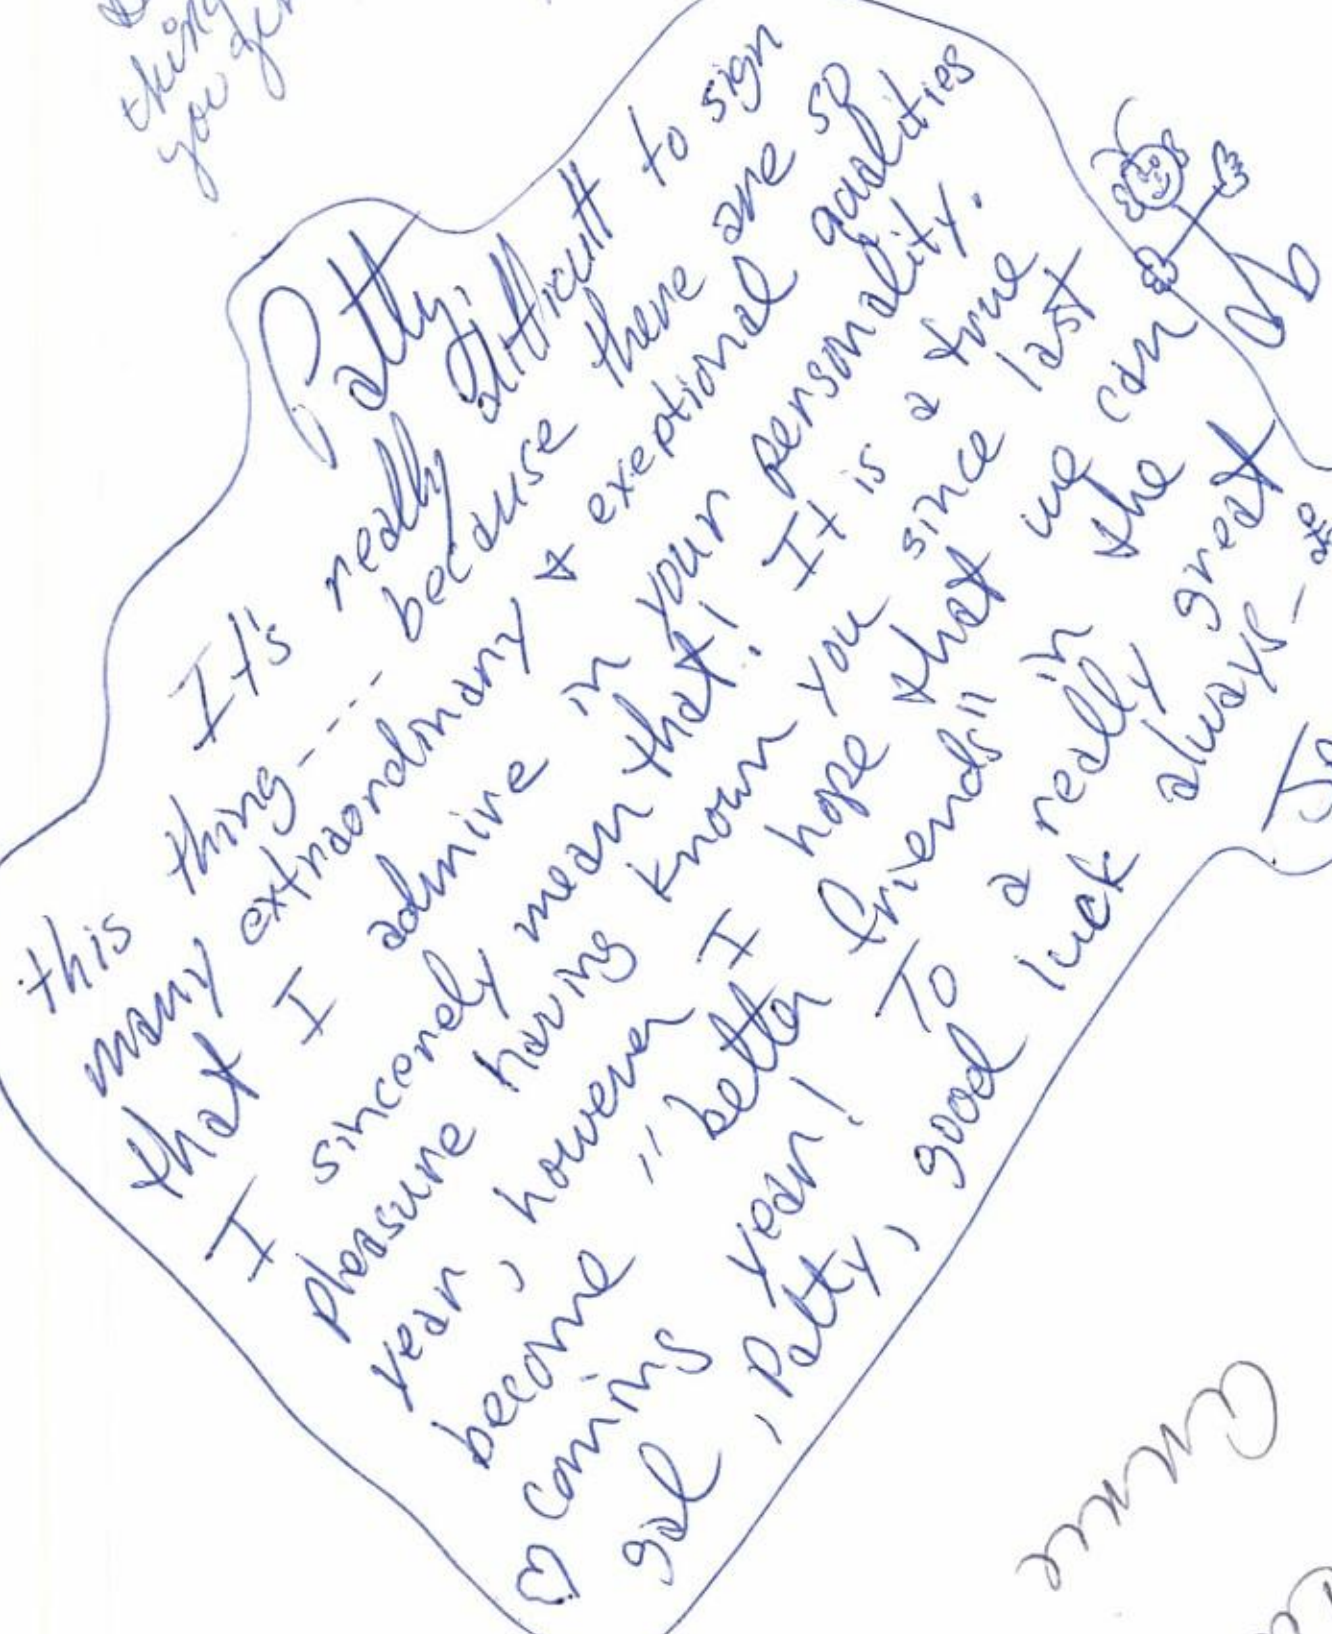 thing
you
Patty,
It's really difficult to sign
this thing---- because there are so
many extraordinary & exeptional qualities
that I admire in your personality.
I sincerely mean that! It is a true
pleasure having known you since last
year, however I hope that we can
become "better friends" in the
coming year! To a really great
gal, Patty, good luck always-